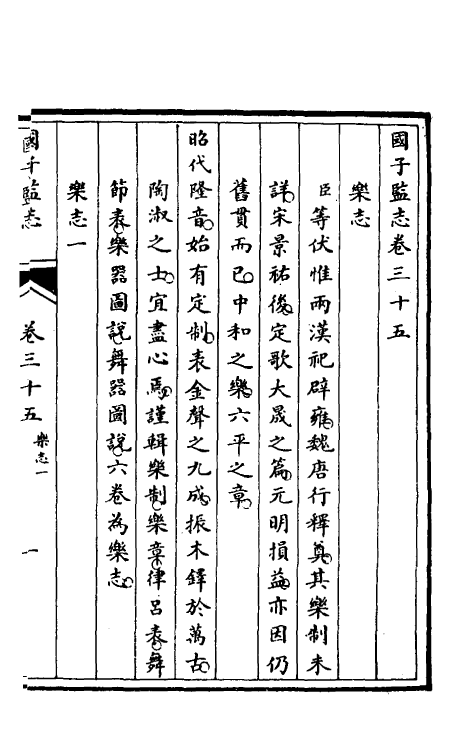 國子監志卷三十五
樂志
臣等伏惟兩漢祀辟雍魏唐行釋奠其樂制未
詳宋景祐後定歌大晟之篇元明損益亦因仍
舊貫而已中和之樂六平之章
昭代隆音始有定制表金聲之九成振木鐸於萬古
陶淑之士宜盡心焉謹輯樂制樂章律呂表舞
節表樂器圖說舞器圖說六卷為樂志
樂志一
國子監志 卷三十五 樂志一 一